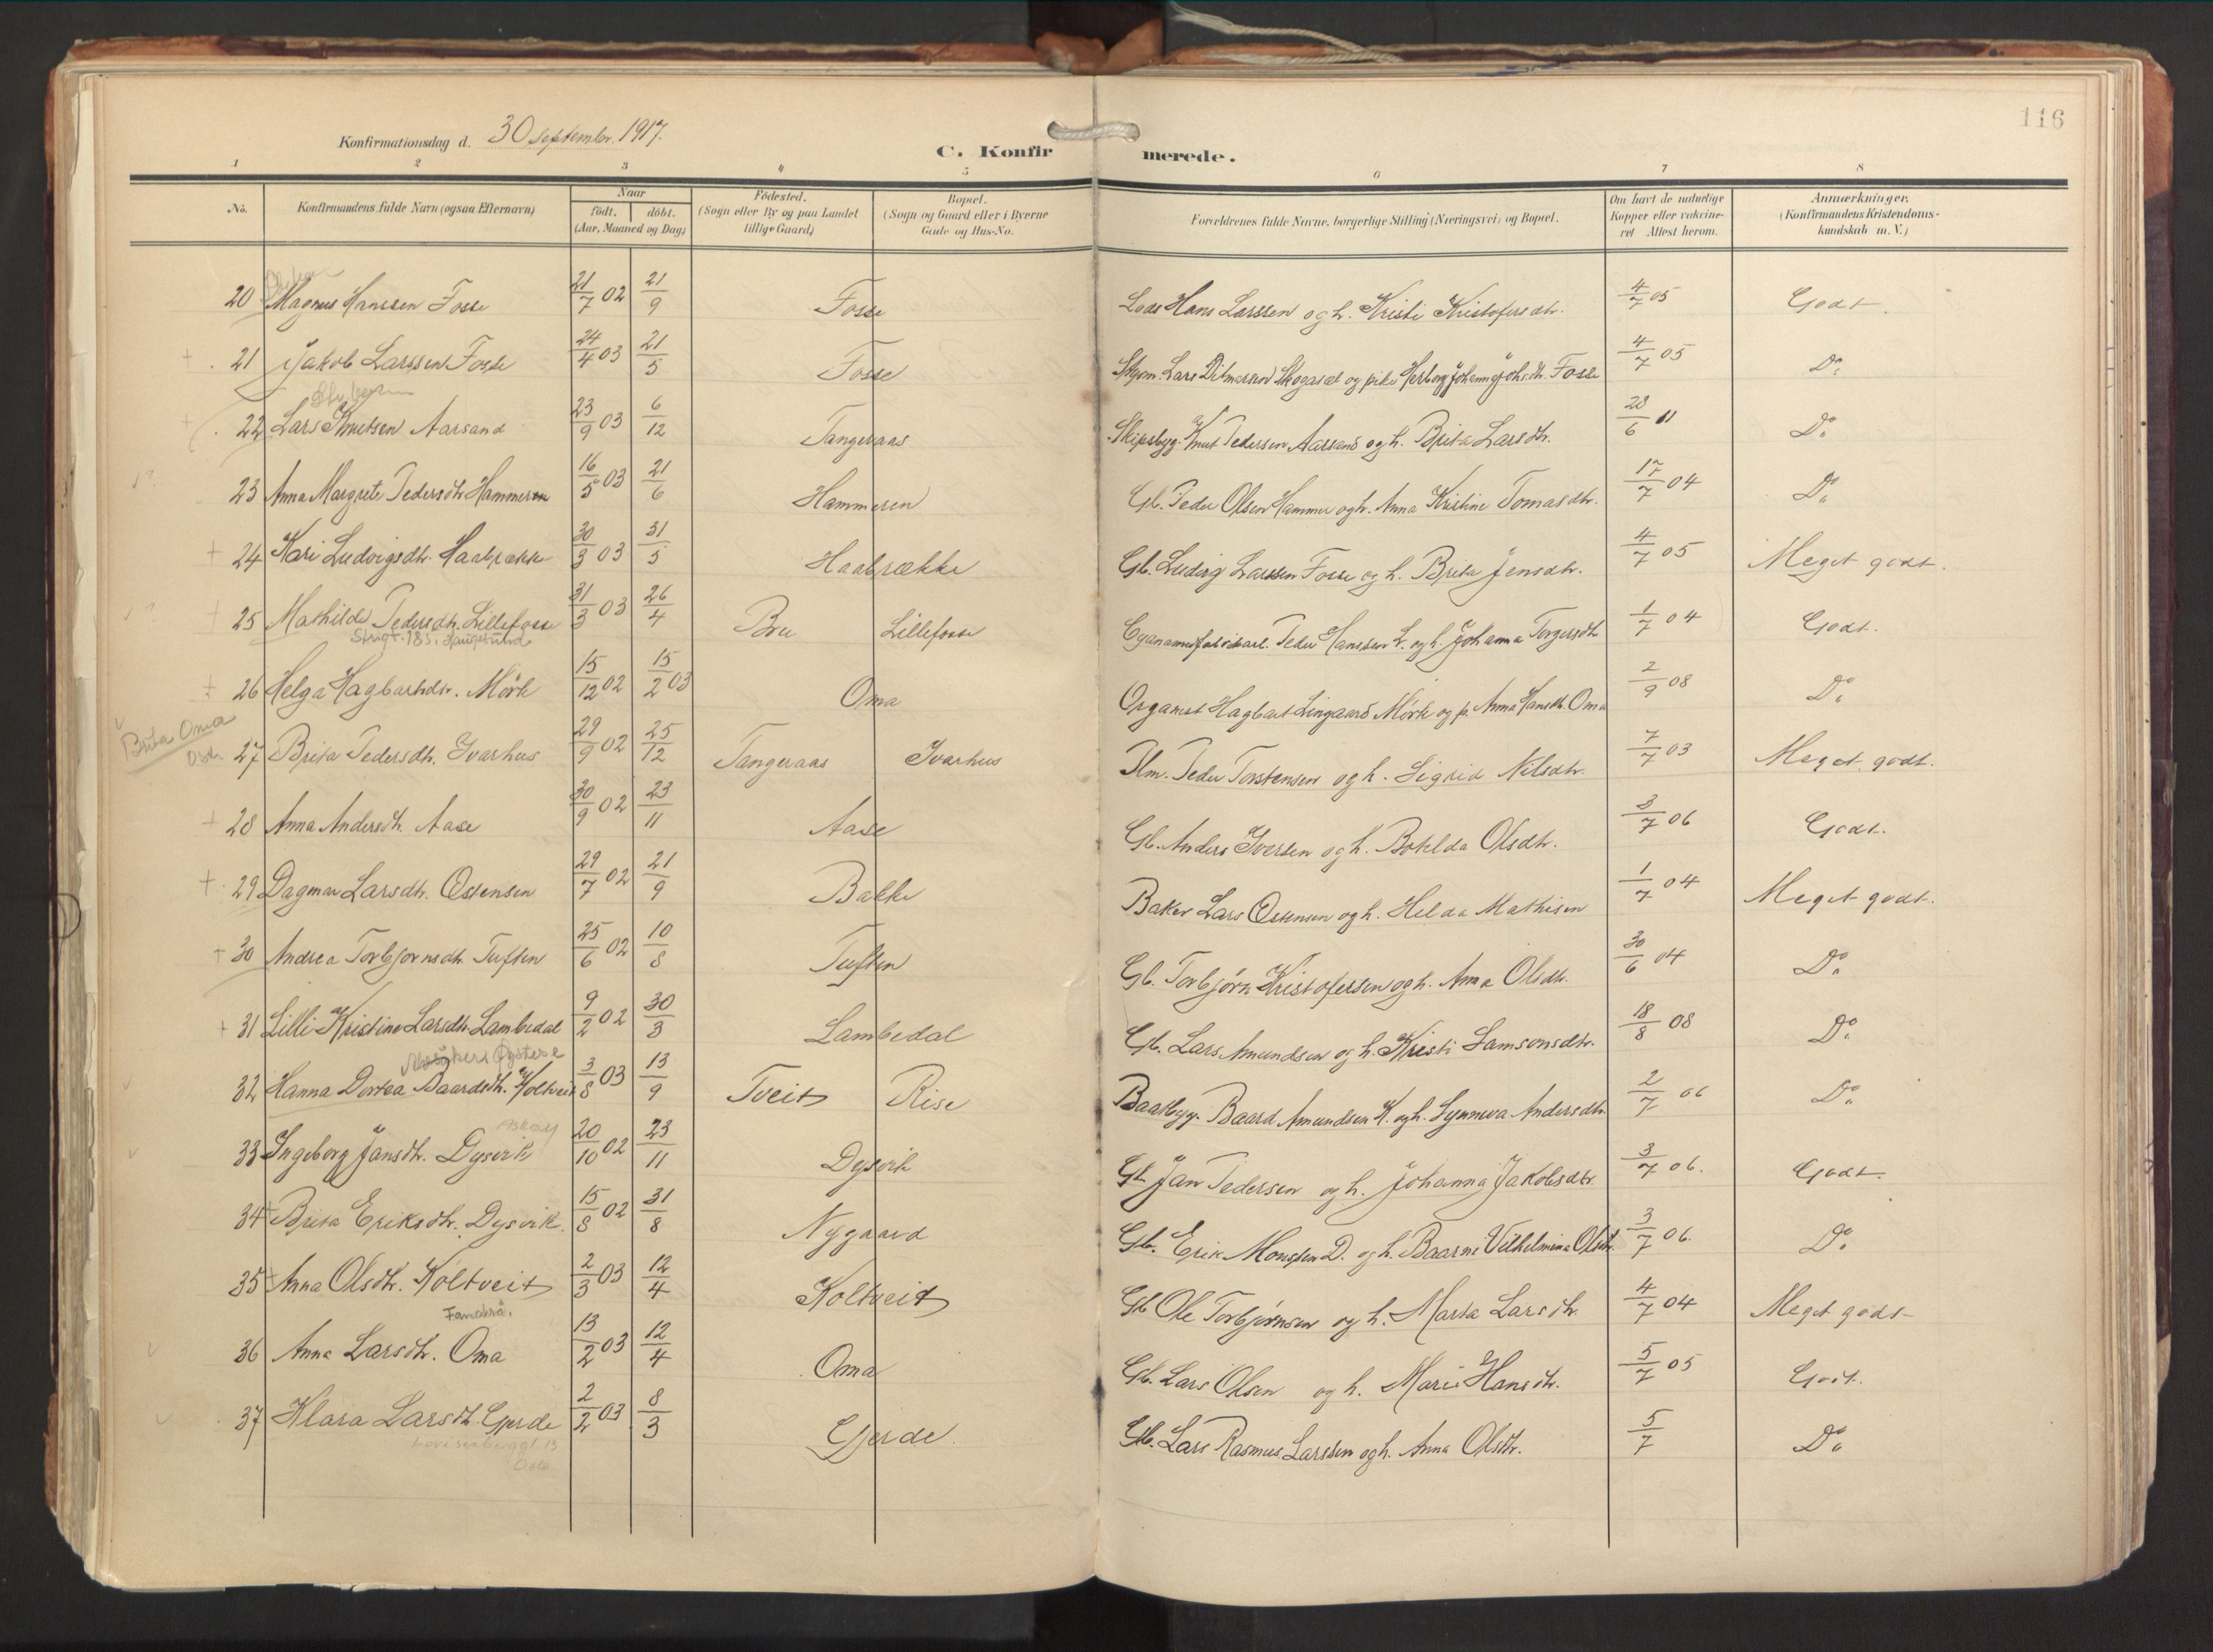 116
Konfirmationsdag d. 30 september 1917.
C. Konfirmerede.
1 2 3 4 5 6 7 8
No. Konfirmandens fulde Navn (ogsaa Efternavn) Naar födt. döbt. (Aar, Maaned og Dag) Födested. (Sogn eller By og paa Landet tillige Gaard) Bopæl. (Sogn og Gaard eller i Byerne Gade og Hus-No. Forældrenes fulde Navne, borgerlige Stilling (Næringsvei) og Bopæl. Om havt de naturlige Kopper eller vakcineret. Attest herom. Anmærkninger. (Konfirmandens Kristendomskundskab m. V.)
20 Magnus Hanssen Fosse 21/7 02 21/9 Fosse Lods Hans Larssen og h. Kristi Kristofersdtr. 4/7 05 Godt.
21 Jakob Larssen Fosse 24/4 03 21/5 Fosse Lars Ditmarsen Skogasel og pike Herborg Johanne Johsdtr. Fosse 4/7 05 Do
22 Lars Knutsen Aarsand 23/9 03 6/12 Tangeraas Skipsbyg. Knut Pedersen Aarsand og h. Brita Larsdtr. 28/6 11 Do
23 Anna Margrete Pedersdtr. Hammeren 16/5 03 21/6 Hammeren Gb. Peder Olsen Hammer og h. Anna Kristine Tomasdtr. 17/7 04 Do
24 Kari Ludvigsdtr. Haabrække 30/3 03 31/5 Haabrække Gb. Ludvig Larssen Fosse og h. Brita Jensdtr. 4/7 05 Meget godt.
25 Mathilde Pedersdtr. Lillefosse 31/3 03 26/4 Bru Lillefosse Peder Hanssen L. og h. Johanna Torgersdtr. 1/7 04 Godt.
26 Helga Hagbartsdtr. Mörk 15/12 02 15/2 03 Oma Organist Hagbart Lingaard Mörk og p. Anna Hansdtr. Oma 2/9 08 Do
Brita Oma
27 Brita Pedersdtr. Ivarhus 29/9 02 25/12 Tangeraas Ivarhus Plm. Peder Torstensen og h. Sigrid Nilsdtr. 7/7 03 Meget godt.
28 Anna Andersdtr. Aase 30/9 02 23/11 Aase Gb. Anders Iversen og h. Botilda Olsdtr. 3/7 06 Godt.
29 Dagmar Larsdtr. Ostensen 29/7 02 21/9 Bakke Baker Lars Ostensen og h. Helda Mathisen 1/7 04 Meget godt.
30 Andrea Torbjornsdtr. Tuften 25/6 02 10/8 Tuften Gb. Torbjörn Kristofersen og h. Anna Olsdtr. 30/6 04 Do
31 Lilli Kristine Larsdtr. Lambedal 9/2 02 30/3 Lambedal Gb. Lars Amundsen og h. Kristi Samsonsdtr. 18/8 08 Do
Øystese
32 Hanna Dortea Baardsdtr. Koltveit 3/8 03 13/9 Tveit Rise Baatbyg. Baard Amundsen K. og h. Synneva Andersdtr. 2/7 06 Do
33 Ingeborg Jansdtr. Dysvik 20/10 02 23/11 Dysvik Gb. Jan Pedersen og h. Johanna Jakobsdtr. 3/7 06. Godt.
34 Brita Eriksdtr. Dysvik 15/8 02 31/8 Nygaard Gb. Erik Monssen D. og h. Baarni Vilhelmina Olsdtr. 3/7 06. Do
35 Anna Olsdtr. Koltveit 2/3 03 12/4 Koltveit Gb. Ole Torbjörnsen og h. Marta Larsdtr. 4/7 04 Meget godt
36 Anna Larsdtr. Oma 13/2 03 12/4 Oma Gb. Lars Olsen og h. Mari Hansdtr. 5/7 05 Godt.
37 Klara Larsdtr. Gjerde 2/2 03 8/3 Gjerde. Gb. Lars Rasmus Larssen og h. Anna Olsdtr. 5/7 Do